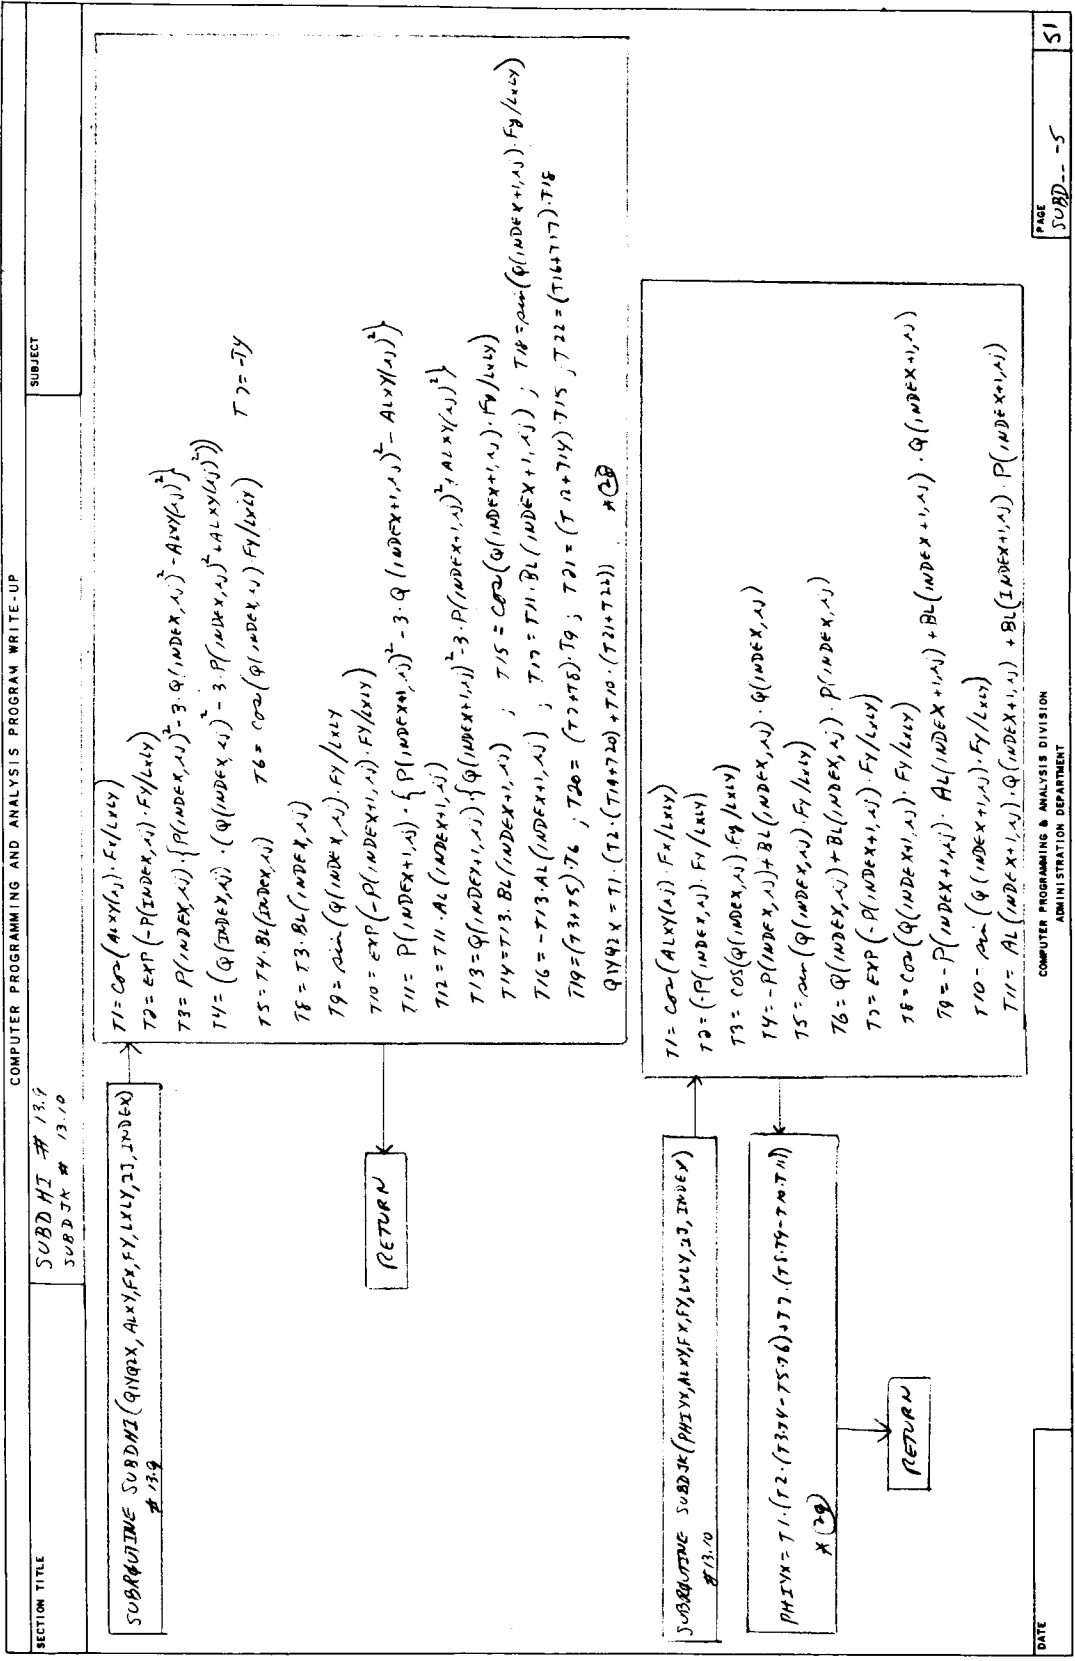 COMPUTER PROGRAMMING AND ANALYSIS PROGRAM WRITE-UP
SECTION TITLE
SUBDHI # 13.9
SUBDJK # 13.10
SUBJECT
SUBRØUTINE SUBDHI(Q1YQ2X, ALXY, FX, FY, LXLY, IJ, INDEX)
# 13.9
T1 = cos(ALXY(IJ)·FX/LXLY)
T2 = EXP(-P(INDEX,IJ)·FY/LXLY)
T3 = P(INDEX,IJ)·{P(INDEX,IJ)²-3·Q(INDEX,IJ)²-ALXY(IJ)²}
T4 = (Q(INDEX,IJ)·(Q(INDEX,IJ)²-3·P(INDEX,IJ)²+ALXY(IJ)²))
T5 = T4·BL(INDEX,IJ) T6 = cos(Q(INDEX,IJ)·FY/LXLY) T7 = -T4
T8 = T3·BL(INDEX,IJ)
T9 = sin(Q(INDEX,IJ)·FY/LXLY
T10 = EXP(-P(INDEX+1,IJ)·FY/LXLY)
T11 = P(INDEX+1,IJ)·{P(INDEX+1,IJ)²-3·Q(INDEX+1,IJ)²-ALXY(IJ)²}
T12 = T11·AL(INDEX+1,IJ)
T13 = Q(INDEX+1,IJ)·{Q(INDEX+1,IJ)²-3·P(INDEX+1,IJ)²+ALXY(IJ)²}
T14 = T13·BL(INDEX+1,IJ) ; T15 = cos(Q(INDEX+1,IJ)·FY/LXLY)
T16 = -T13·AL(INDEX+1,IJ) ; T17 = T11·BL(INDEX+1,IJ) ; T18 = sin(Q(INDEX+1,IJ)·FY/LXLY)
T19 = (T3+T5)·T6 ; T20 = (T7+T8)·T9 ; T21 = (T12+T14)·T15 ; T22 = (T16+T17)·T18
Q1YQ2X = T1·(T2·(T19+T20)+T10·(T21+T22)) *(28)
RETURN
SUBRØUTINE SUBDJK(PHIYX, ALXY, FX, FY, LXLY, IJ, INDEX)
#13.10
T1 = cos(ALXY(IJ)·FX/LXLY)
T2 = (-P(INDEX,IJ)·FY/LXLY)
T3 = COS(Q(INDEX,IJ)·FY/LXLY)
T4 = -P(INDEX,IJ)+BL(INDEX,IJ)·Q(INDEX,IJ)
T5 = sin(Q(INDEX,IJ)·FY/LXLY)
T6 = Q(INDEX,IJ)+BL(INDEX,IJ)·P(INDEX,IJ)
T7 = EXP(-P(INDEX+1,IJ)·FY/LXLY)
T8 = cos(Q(INDEX+1,IJ)·FY/LXLY)
T9 = -P(INDEX+1,IJ)·AL(INDEX+1,IJ)+BL(INDEX+1,IJ)·Q(INDEX+1,IJ)
T10 - sin(Q(INDEX+1,IJ)·FY/LXLY)
T11 = AL(INDEX+1,IJ)·Q(INDEX+1,IJ)+BL(INDEX+1,IJ)·P(INDEX+1,IJ)
PHIYX = T1·(T2·(T3·T4-T5·T6)+T7·(T8·T9-T10·T11)
*(29)
RETURN
DATE
COMPUTER PROGRAMMING & ANALYSIS DIVISION
ADMINISTRATION DEPARTMENT
PAGE
SUBD-- -5
51